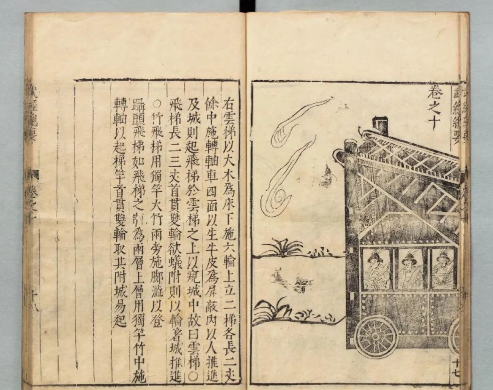 武經總要
卷之十
十七
右雲梯以大木為床下施六輪上立二梯各長二丈
餘中施轉軸車四面以生牛皮為屏蔽內以人推進
及城則起飛梯於雲梯之上以窺城中故曰雲梯○
飛梯長二三丈首貫雙輪欲蟻附則以輪著城推進
○竹飛梯用獨竿大竹兩旁施脚澁以登
躡頭飛梯如飛梯之制為兩層上層用獨竿竹中施
轉軸以起梯竿首貫雙輪取其附城易起
武經總要
卷之十
十八